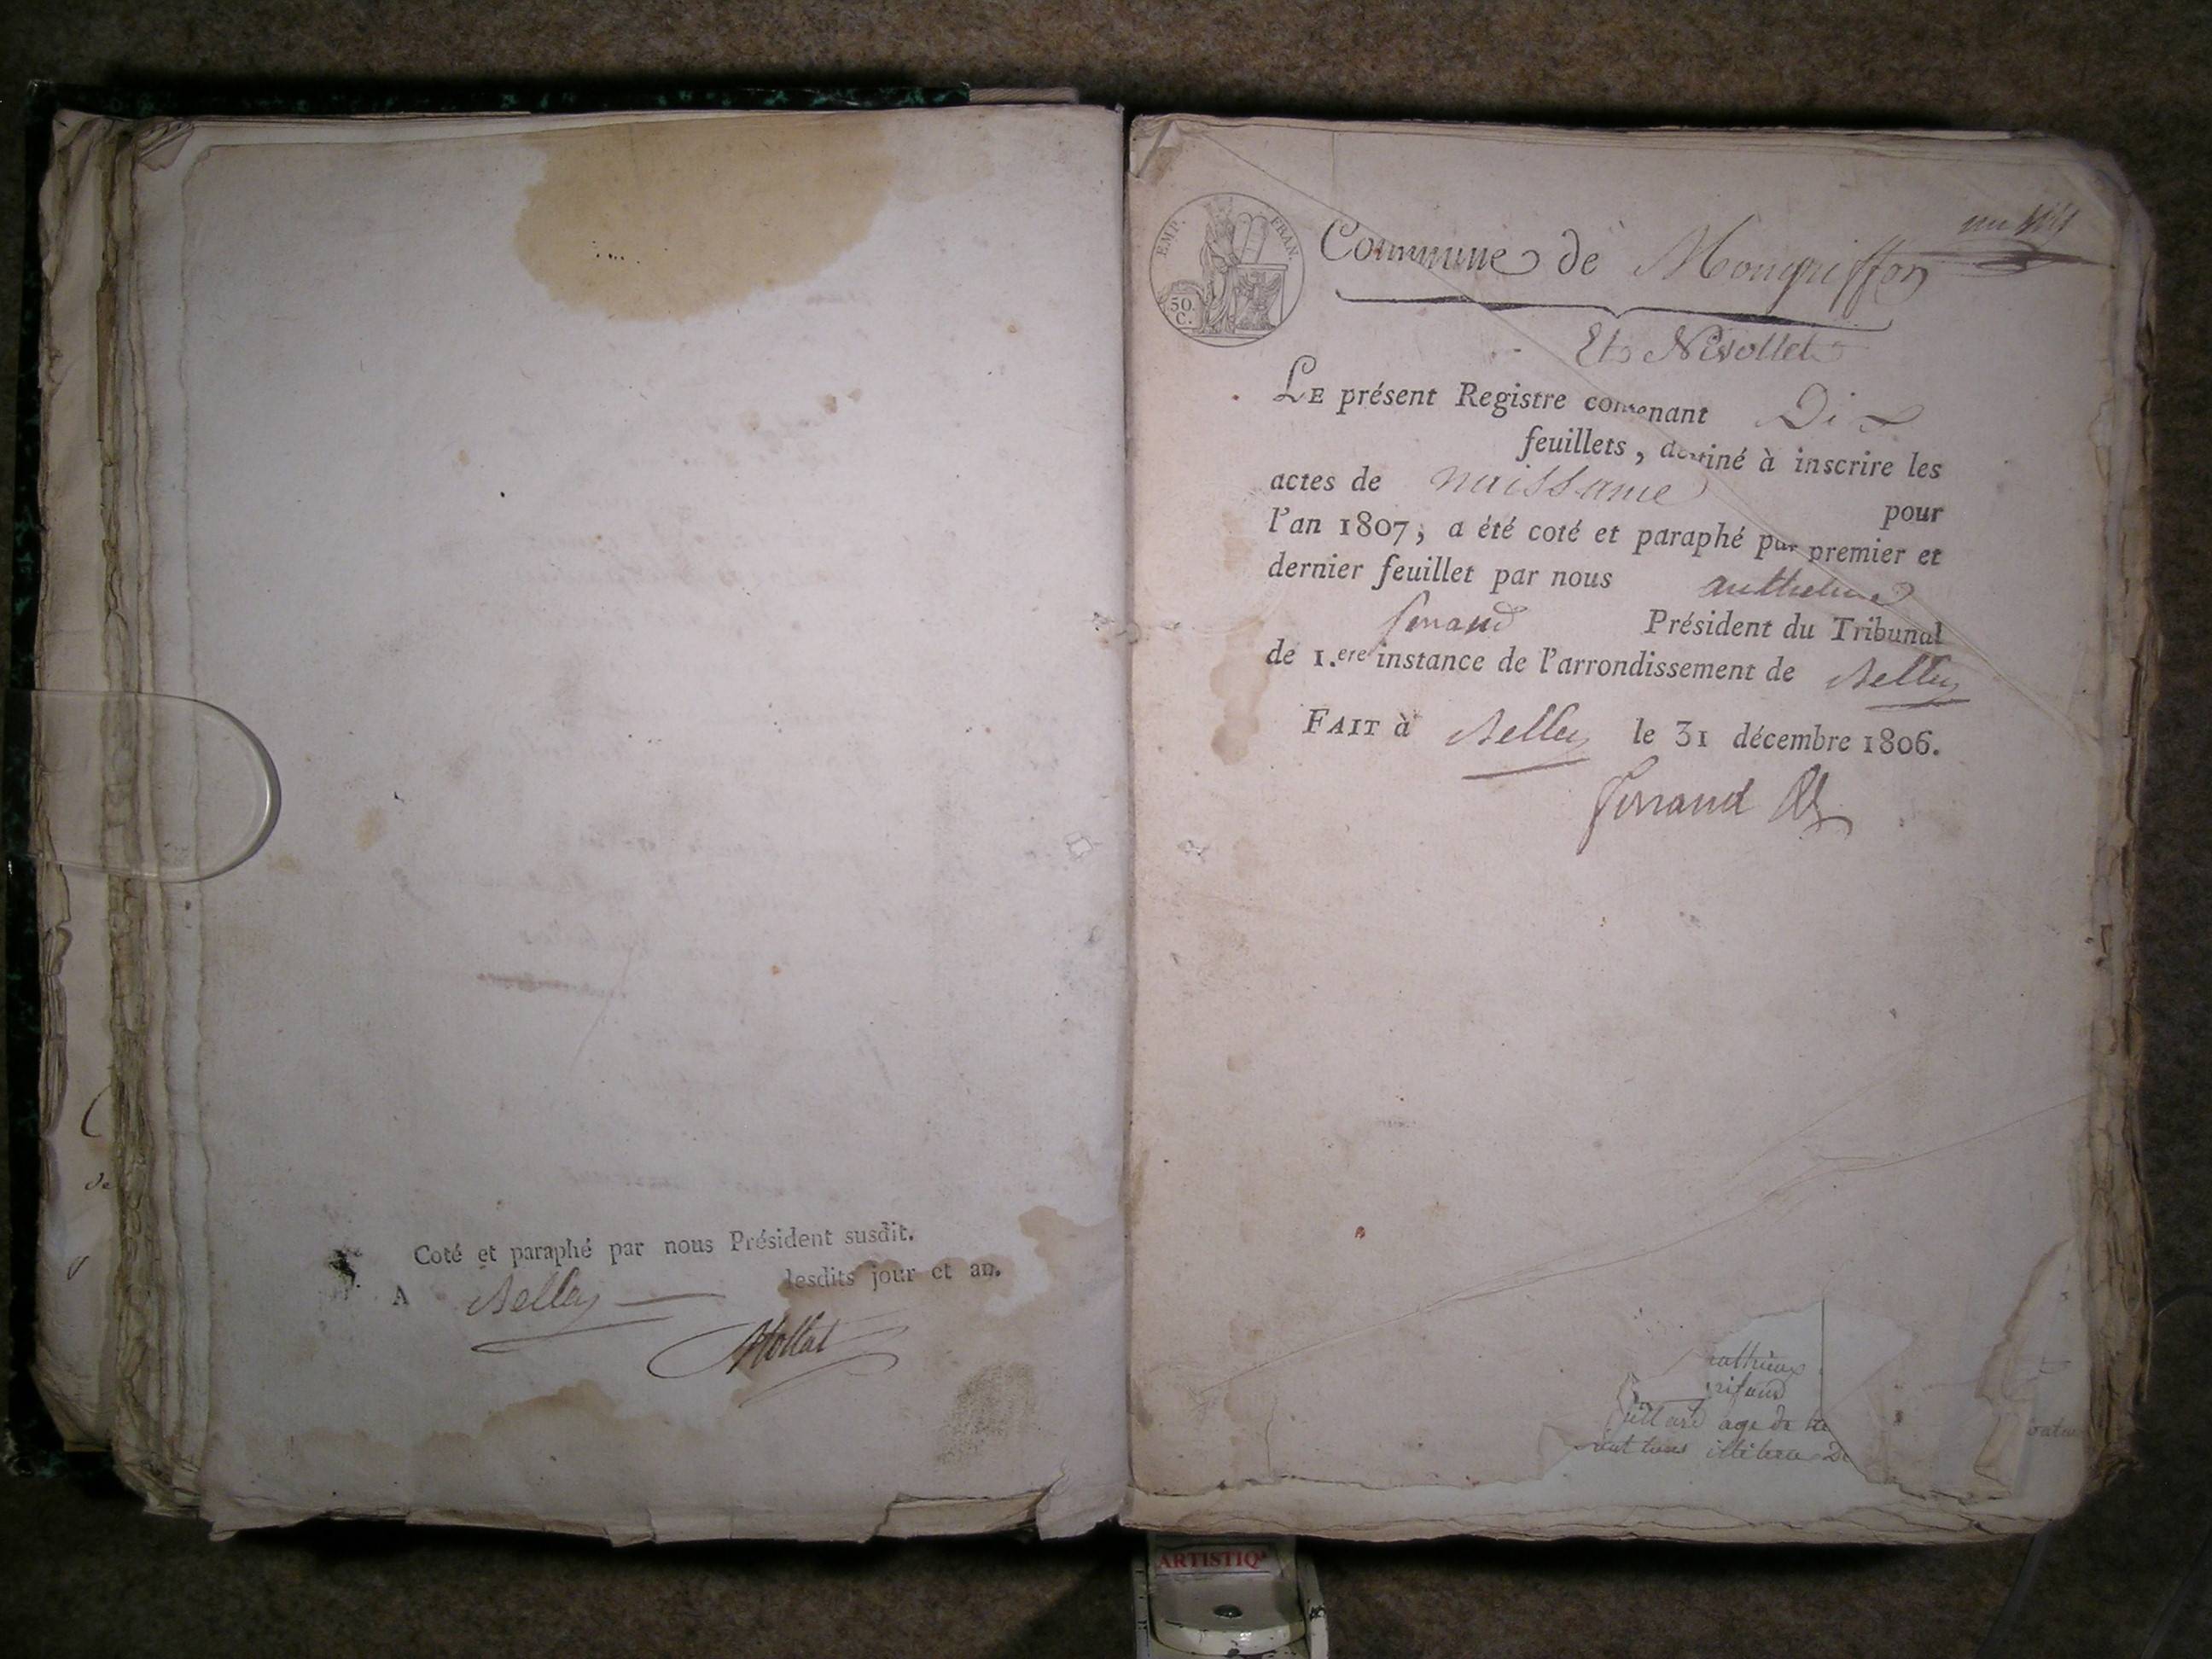 Coté et paraphé par nous Président susdit.
A Belley lesdits jour et an.
Mollat
EMP. FRAN.
50
C.
Commune de Mongriffon
Et Nivollet
LE présent Registre contenant Dix
feuillets, destiné à inscrire les
actes de naissance pour
l'an 1807, a été coté et paraphé par premier et
dernier feuillet par nous anthelme
ferrand Président du Tribunal
de 1.ere instance de l'arrondissement de Belley
FAIT à Belley le 31 décembre 1806.
ferrand
age de
ARTISTIQ